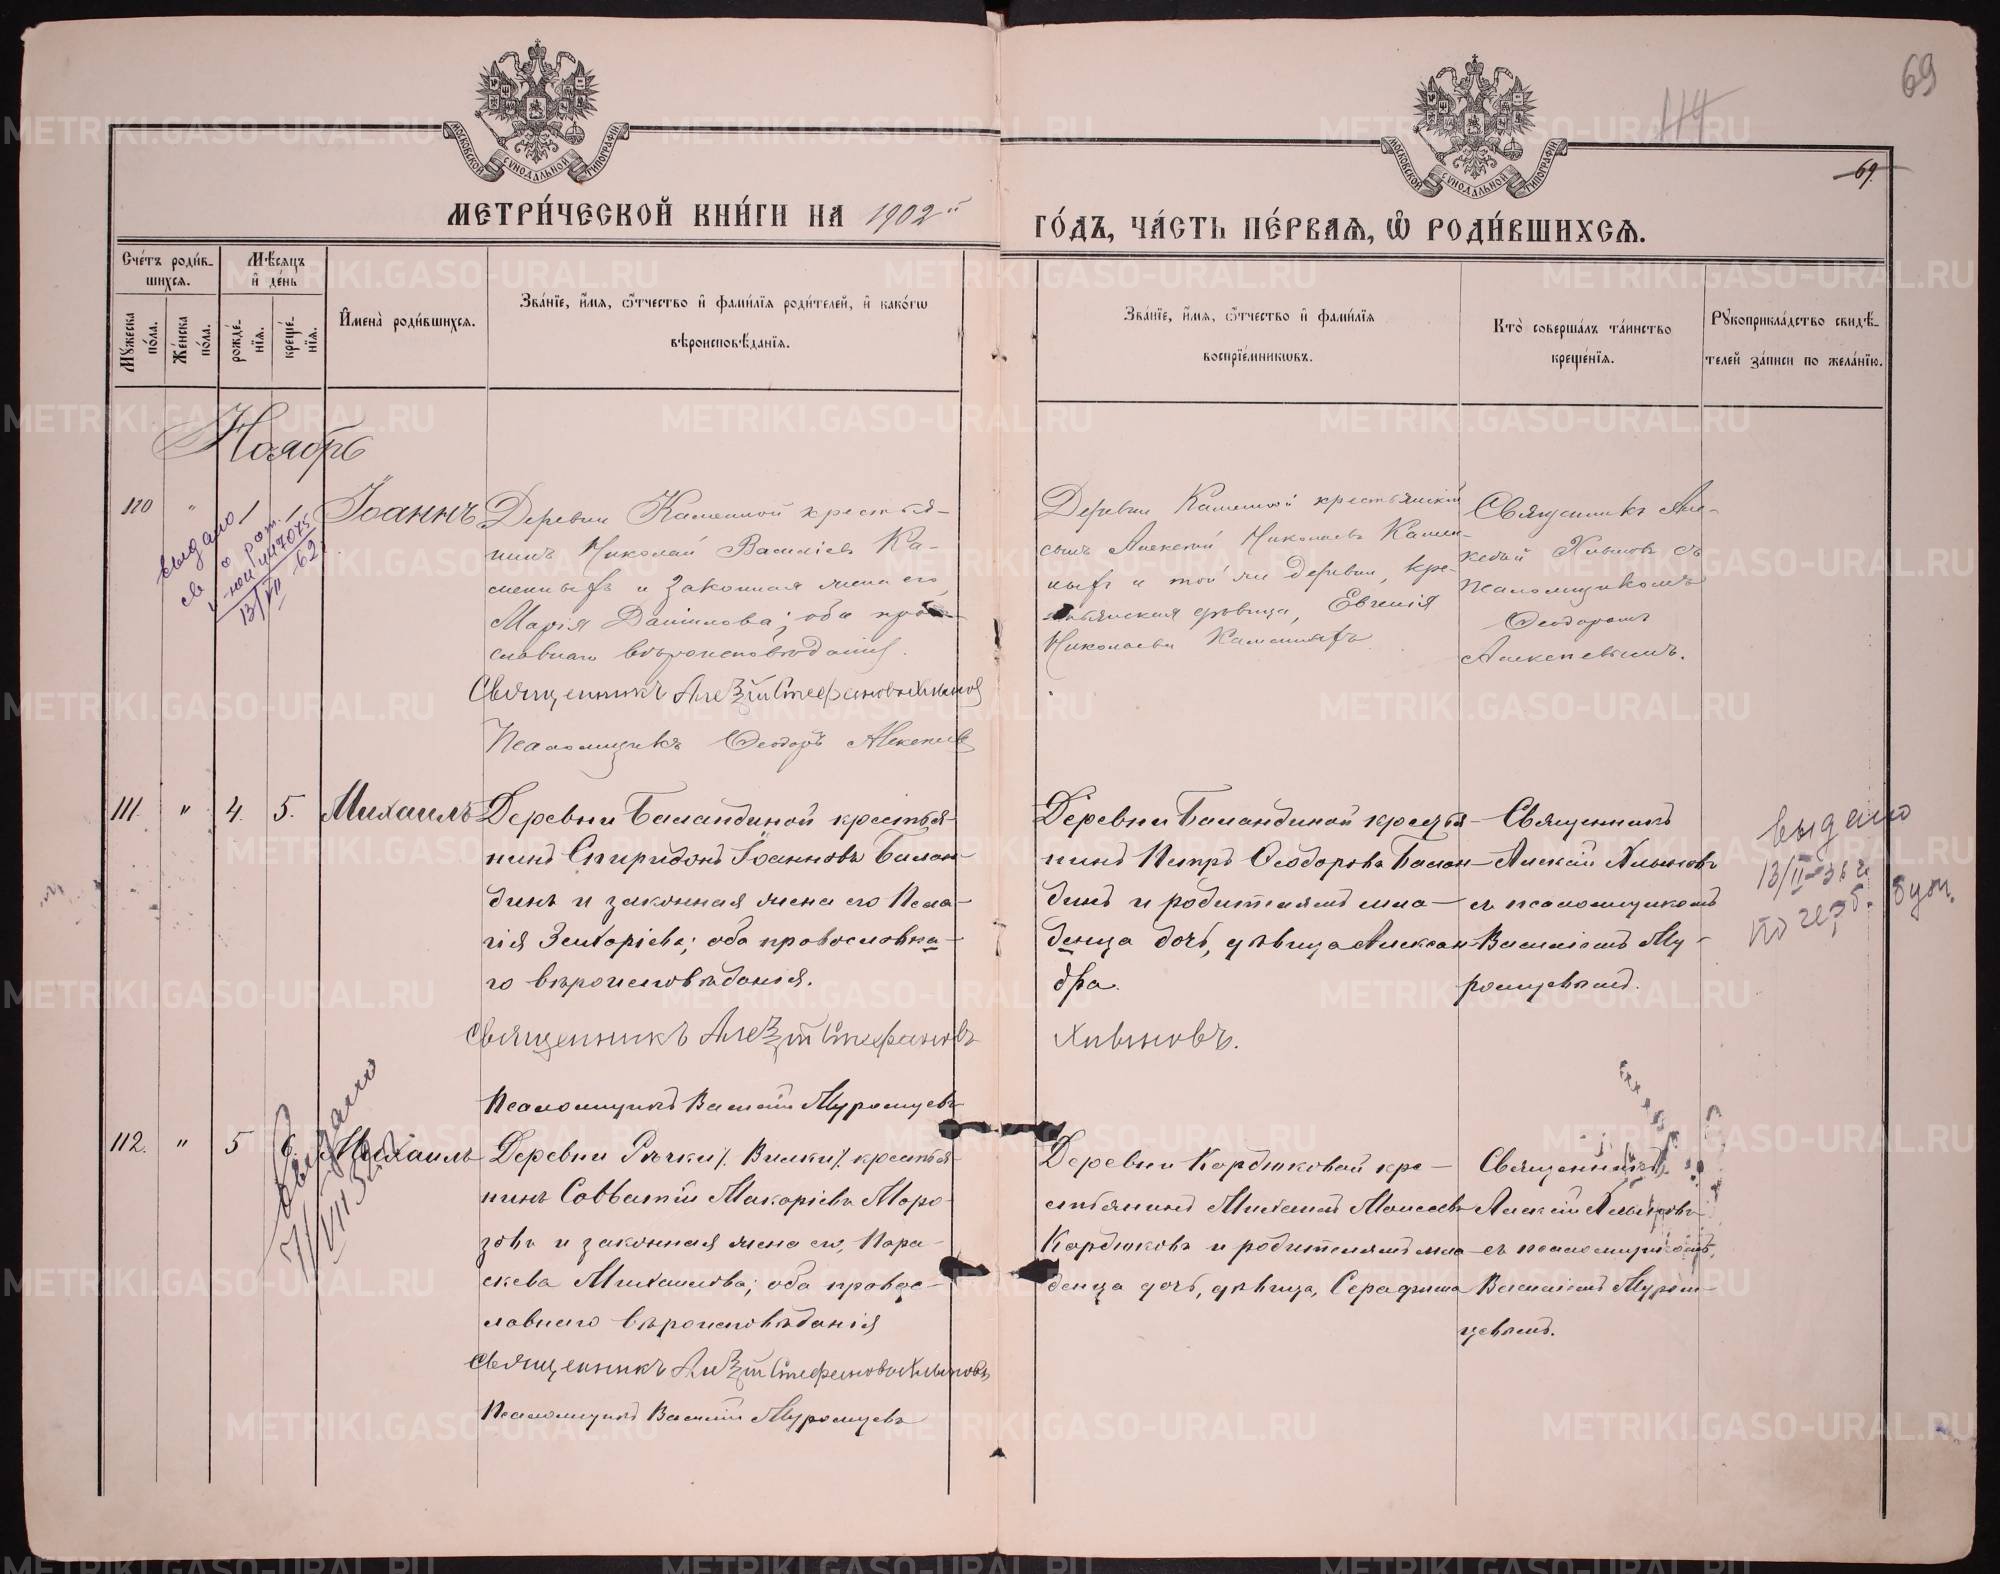 69
114
69.
МОСКОВСКОЙ СѴНОДАЛЬНОЙ ТИПОГРАФІИ
МОСКОВСКОЙ СѴНОДАЛЬНОЙ ТИПОГРАФІИ
МЕТРИ́ЧЕСКОЙ КНИ́ГИ НА 1902й ГО́ДЪ, ЧА́СТЬ ПЕ́РВАЯ, Ѽ РОДИ́ВШИХСЯ.
Сче́тъ роди́в-
шихся.
Мѣсяцъ
и̂ де́нь
Мꙋ́жеска по́ла.
Же́нска по́ла.
рожде́-
нїя.
креще́-
нїя.
И̂мена̀ роди́вшихся.
Зва́нїе, и̂мя, ѻтчество и̂ фами́лїя роди́телей, и̂ како́гѡ
вѣроисповѣ́данїя.
Зва́нїе, и̂мя, ѻтчество и̂ фами́лїя
воспрїе́мникѡвъ.
Кто̀ соверша́лъ та́инство
креще́нїя.
Рꙋкоприкла́дство свидѣ́-
телей за́писи по жела́нїю.
Ноябрь
110 " 1 1 Іоаннъ
Деревни Каменной крестья-
нинъ Николай Василіевъ Ка-
менныхъ и законная жена его,
Марія Данилова; оба право-
славнаго вѣроисповѣданія.
Священникъ Алексій Стефановъ Хлыновъ
Псаломщикъ Ѳеодоръ Алексѣевъ
Деревни Каменной крестьянскій
сынъ Алексѣй Николаевъ Камен-
ныхъ и той же деревни, кре-
стьянская дѣвица, Евгенія
Николаева Каменныхъ
Священникъ Але-
ксѣй Хлыновъ съ
псаломщикомъ
Ѳеодоромъ
Алексѣевымъ.
выдано
13/VII 62
111. " 4. 5. Михаилъ
Деревни Баландиной крестья-
нинъ Спиридонъ Іоанновъ Балан-
динъ и законная жена его Пела-
гія Захаріева; оба православна-
го вѣроисповѣданія.
Священникъ Алексій Стефановъ Хлыновъ.
Псаломщикъ Василій Муромцевъ
Деревни Баландиной крестья-
нинъ Петръ Ѳеодоровъ Балан-
динъ и родителямъ мла-
денца дочь, дѣвица Алексан-
дра.
Священникъ
Алексій Хлыновъ
съ псаломщикомъ
Василіемъ Му-
ромцевымъ.
выдано
112. " 5 6. Михаилъ
Деревни Рѣчки /. Вилки /. крестья-
нинъ Савватій Макаріевъ Моро-
зовъ и законная жена его, Пара-
скева Михаилова; оба правос-
лавнаго вѣроисповѣданія
Священникъ Алексій Стефановъ Хлыновъ
Псаломщикъ Василій Муромцевъ
Деревни Кордюковой кре-
стьянинъ Михаилъ Моисеевъ
Кордюковъ и родителямъ мла-
денца дочь, дѣвица, Серафима
Священникъ
Алексій Хлыновъ
съ псаломщикомъ
Василіемъ Муром-
цевымъ.
Выдано
METRIKI.GASO-URAL.RU